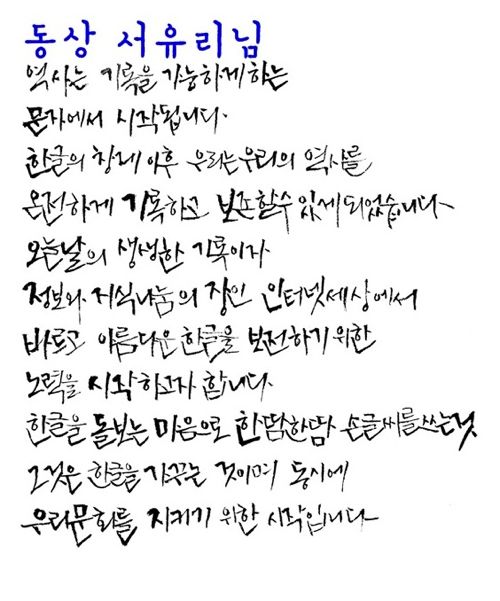 동상 서유리님
역사는 기록을 가능하게 하는
문자에서 시작됩니다.
한글의 창제 이후 우리는 우리의 역사를
온전하게 기록하고 보존할 수 있게 되었습니다.
오늘날의 생생한 기록이자
정보와 지식나눔의 장인 인터넷세상에서
바르고 아름다운 한글을 보전하기 위한
노력을 시작하고자 합니다.
한글을 돌보는 마음으로 한땀한땀 손글씨를 쓰는것
그것은 한글을 가꾸는 것이며 동시에
우리문화를 지키기 위한 시작입니다